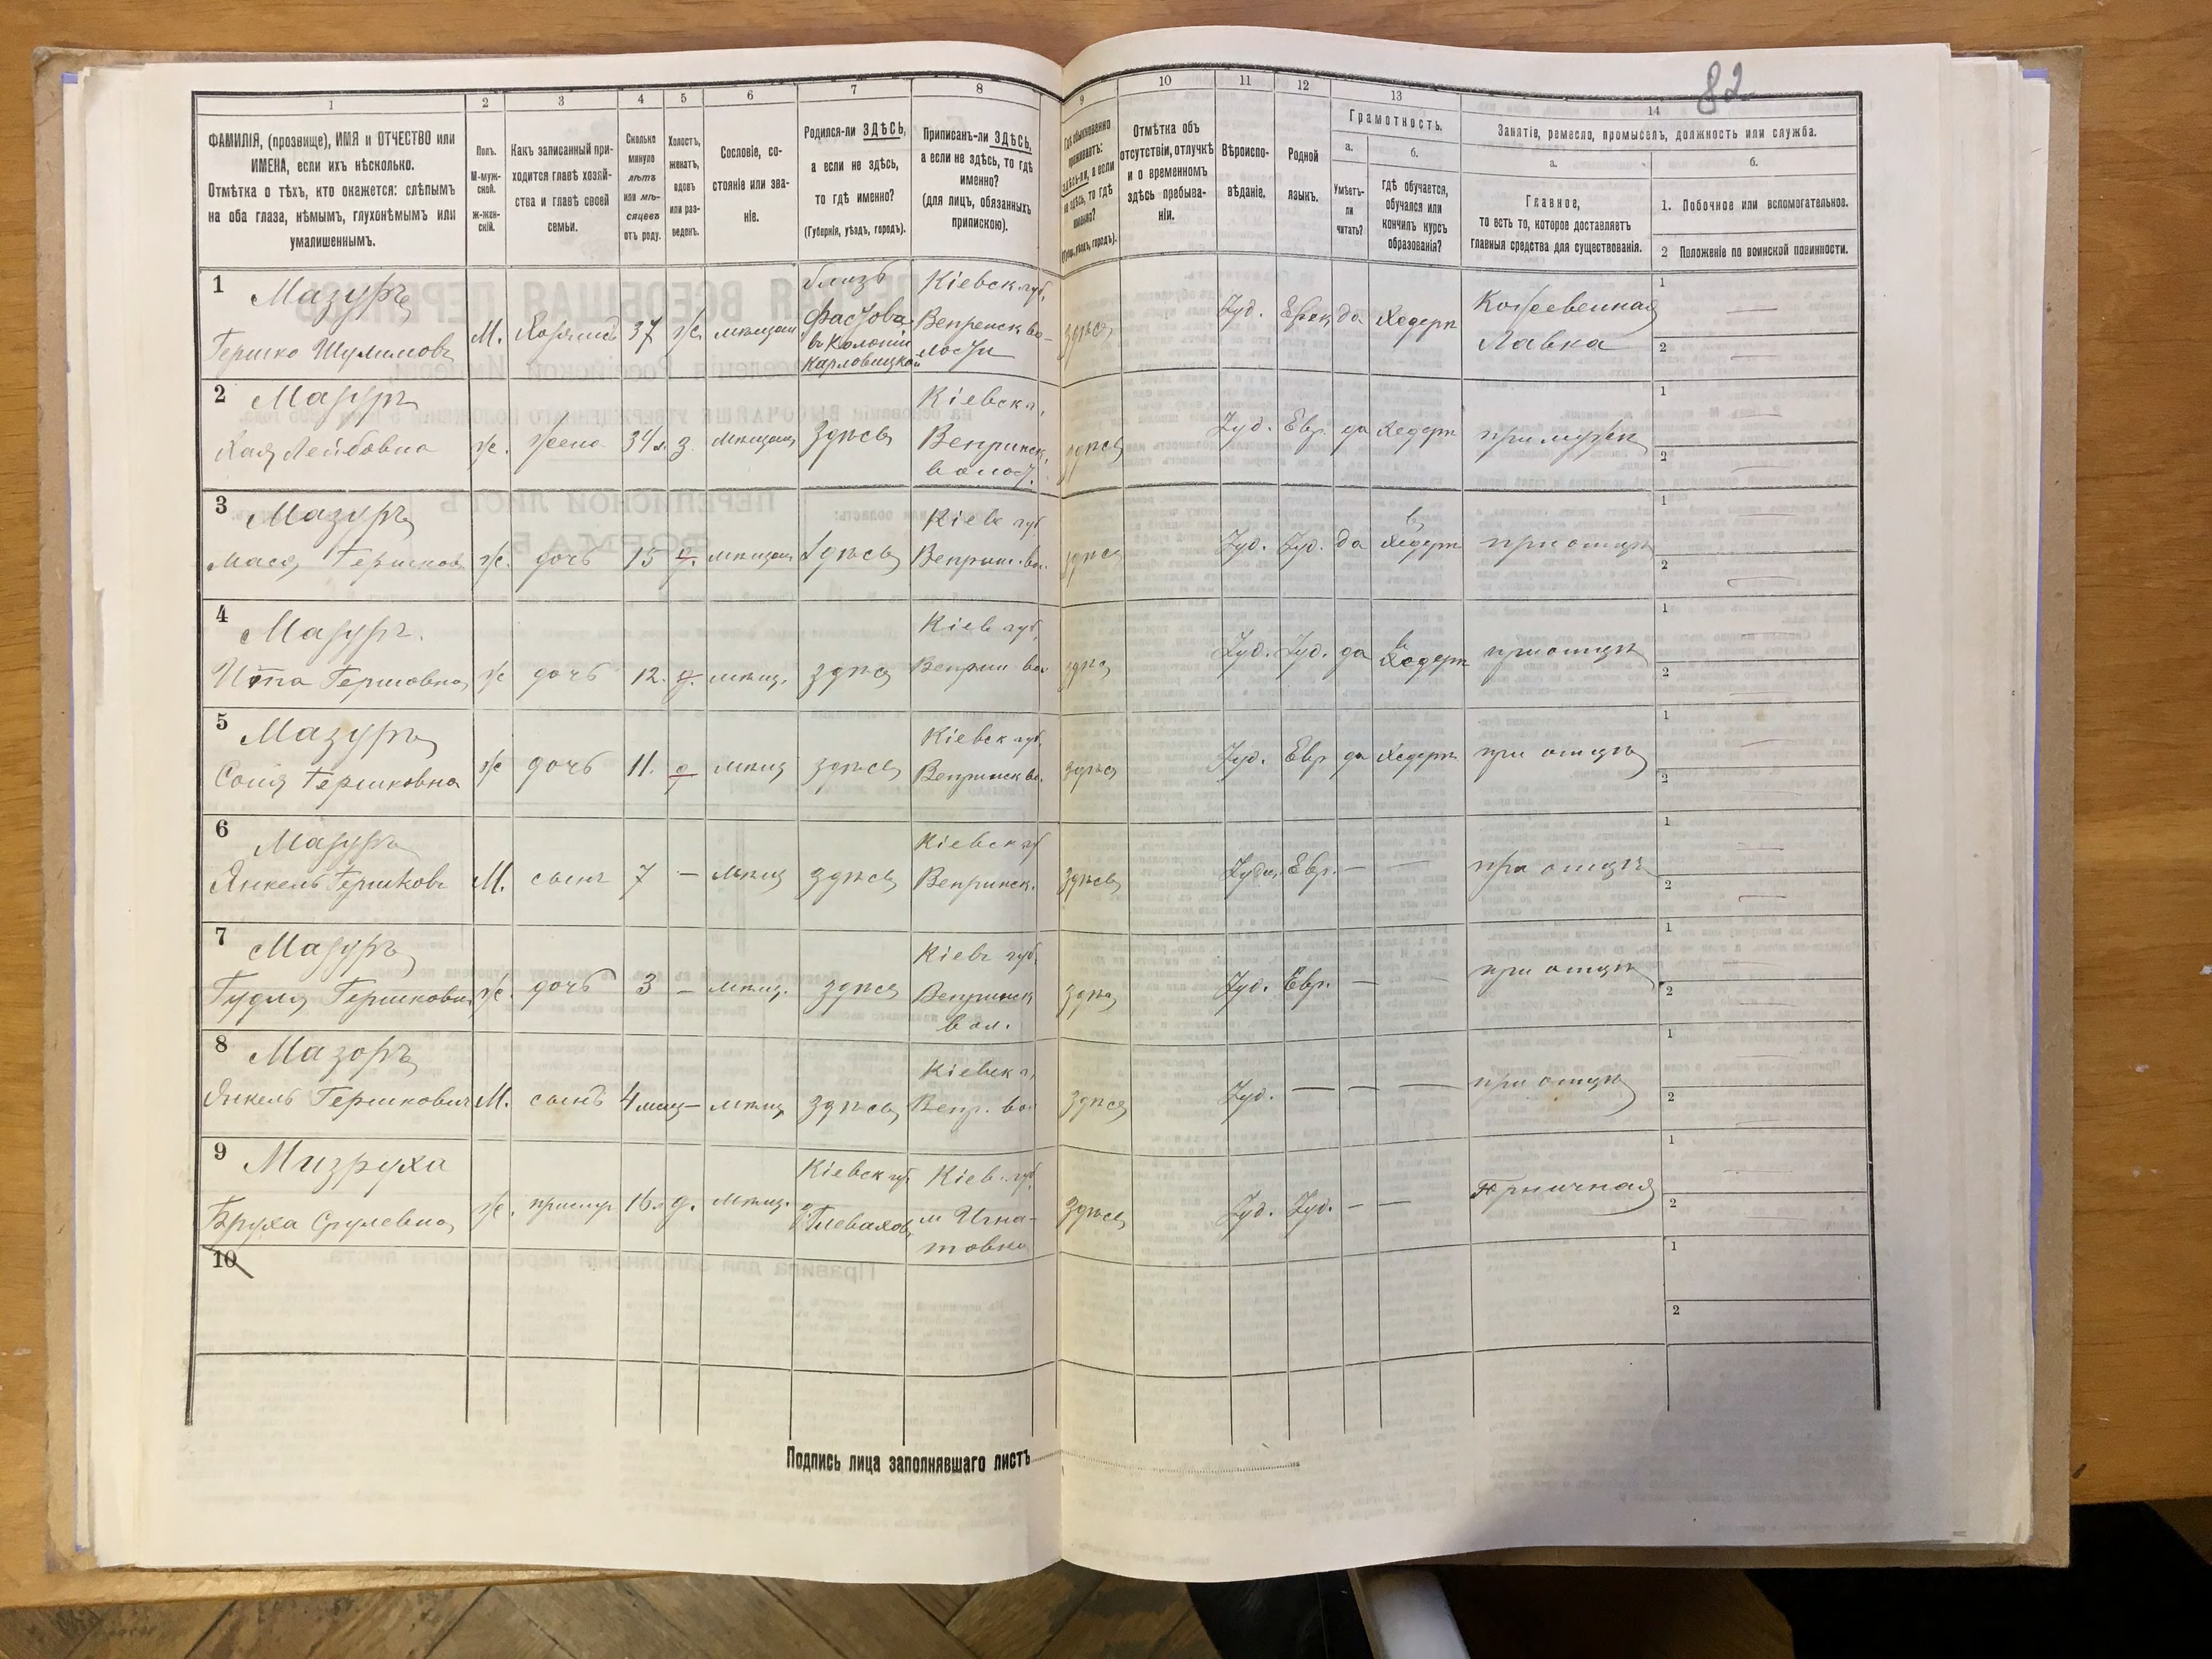 82
1 2 3 4 5 6 7 8 9 10 11 12 13 14
ФАМИЛІЯ, (прозвище), ИМЯ и ОТЧЕСТВО или
ИМЕНА, если ихъ нѣсколько.
Отмѣтка о тѣхъ, кто окажется: слѣпымъ
на оба глаза, нѣмымъ, глухонѣмымъ или
умалишеннымъ.
Полъ.
М-муж-
ской.
Ж-жен-
скій.
Какъ записанный при-
ходится главѣ хозяй-
ства и главѣ своей
семьи.
Сколько
минуло
лѣтъ
или мѣ-
сяцевъ
отъ роду.
Холостъ,
женатъ,
вдовъ
или раз-
веденъ.
Сословіе, со-
стояніе или зва-
ніе.
Родился-ли ЗДѢСЬ,
а если не здѣсь,
то гдѣ именно?
(Губернія, уѣздъ, городъ).
Приписанъ-ли ЗДѢСЬ,
а если не здѣсь, то гдѣ
именно?
(для лицъ, обязанныхъ
припискою).
Гдѣ обыкновенно
проживаетъ:
здѣсь-ли, а если
не здѣсь, то гдѣ
именно?
Отмѣтка объ
отсутствіи, отлучкѣ
и о временномъ
здѣсь пребыва-
ніи.
Вѣроиспо-
вѣданіе.
Родной
языкъ.
Грамотность.
а.
Умѣетъ-
ли
читать?
б.
гдѣ обучается,
обучался или
кончилъ курсъ
образованія?
Занятіе, ремесло, промыселъ, должность или служба.
а.
Главное,
то есть то, которое доставляетъ
главныя средства для существованія.
б.
1. Побочное или вспомогательное.
2 Положеніе по воинской повинности.
1 Мазуръ близъ Кіевск. губ. 1
Фастова Вепренск во- Кожевенная
Гершко Шулимовъ М. 37 мѣщан въ Колоніи лости здѣсь Іуд. Еврек да Хедерѣ Лавка 2
Карловицкой
2 Мазуръ Кіевск г. 1
Хая Лейбовна ж. жена 34 л. з. мѣщан здѣсь Вепринск. здѣсь Іуд. Евр. да Хедерѣ при мужѣ 2
волост.
3 Мазуръ Кіев губ 1
Мася Гершков ж. дочь 15 д. мѣщан здѣсь Веприн. вол. здѣсь Іуд. Іуд. да въ Хедерѣ при отцѣ 2
4 Мазуръ. Кіев губ. 1
Итта Гершовна ж дочь 12. д. мѣщ. здѣсь Веприн вол здѣсь Іуд. Іуд. да в Хедерѣ при отцѣ 2
5 Мазуръ Кіевск губ. 1
Соня Гершковна ж дочь 11. д мѣщ здѣсь Вепринск во. здѣсь Іуд. Евр да Хедерѣ при отцѣ 2
6 Мазуръ Кіевск губ 1
Янкель Гершковъ М. сынъ 7 — мѣщ здѣсь Вепринск. здѣсь Іуд. Евр. — — при отцѣ 2
7 Мазуръ Кіевъ губ. 1
Гудля Гершковн ж. дочь 3 — мѣщ. здѣсь Вепринск здѣсь Іуд. Евр. — — при отцѣ 2
вол.
8 Мазоръ Кіевск г. 1
Янкель Гершкович М. сынъ 4 мѣсяц — мѣщ здѣсь Вепр. вол здѣсь Іуд. — — — при отцѣ 2
9 Мизруха Кіевск губ Кіев. губ 1
Бруха Срулевна ж. прислуг 16 л д. мѣщ. Глевахов м Игна- здѣсь Іуд. Іуд. — — 2
товка
10 1
2
Подпись лица заполнявшаго листъ